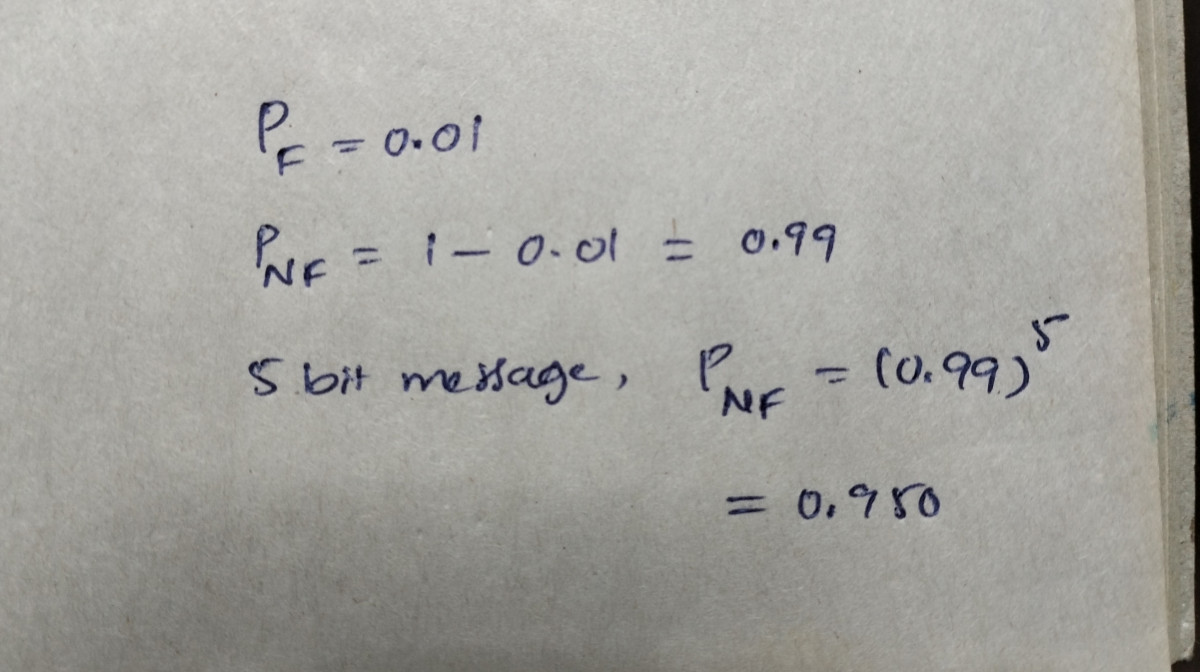 P_F = 0.01
P_NF = 1 - 0.01 = 0.99
5 bit message, P_NF = (0.99)^5
= 0.950